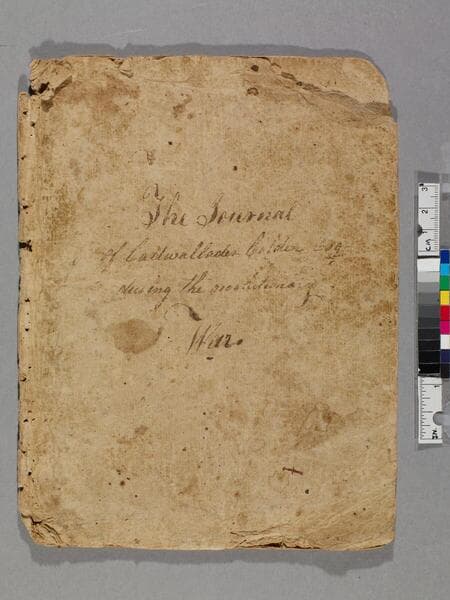 The Journal
of Cadwallader Colden Esq
during the revolutionary
War.
CM 1 2 3
IN. 1